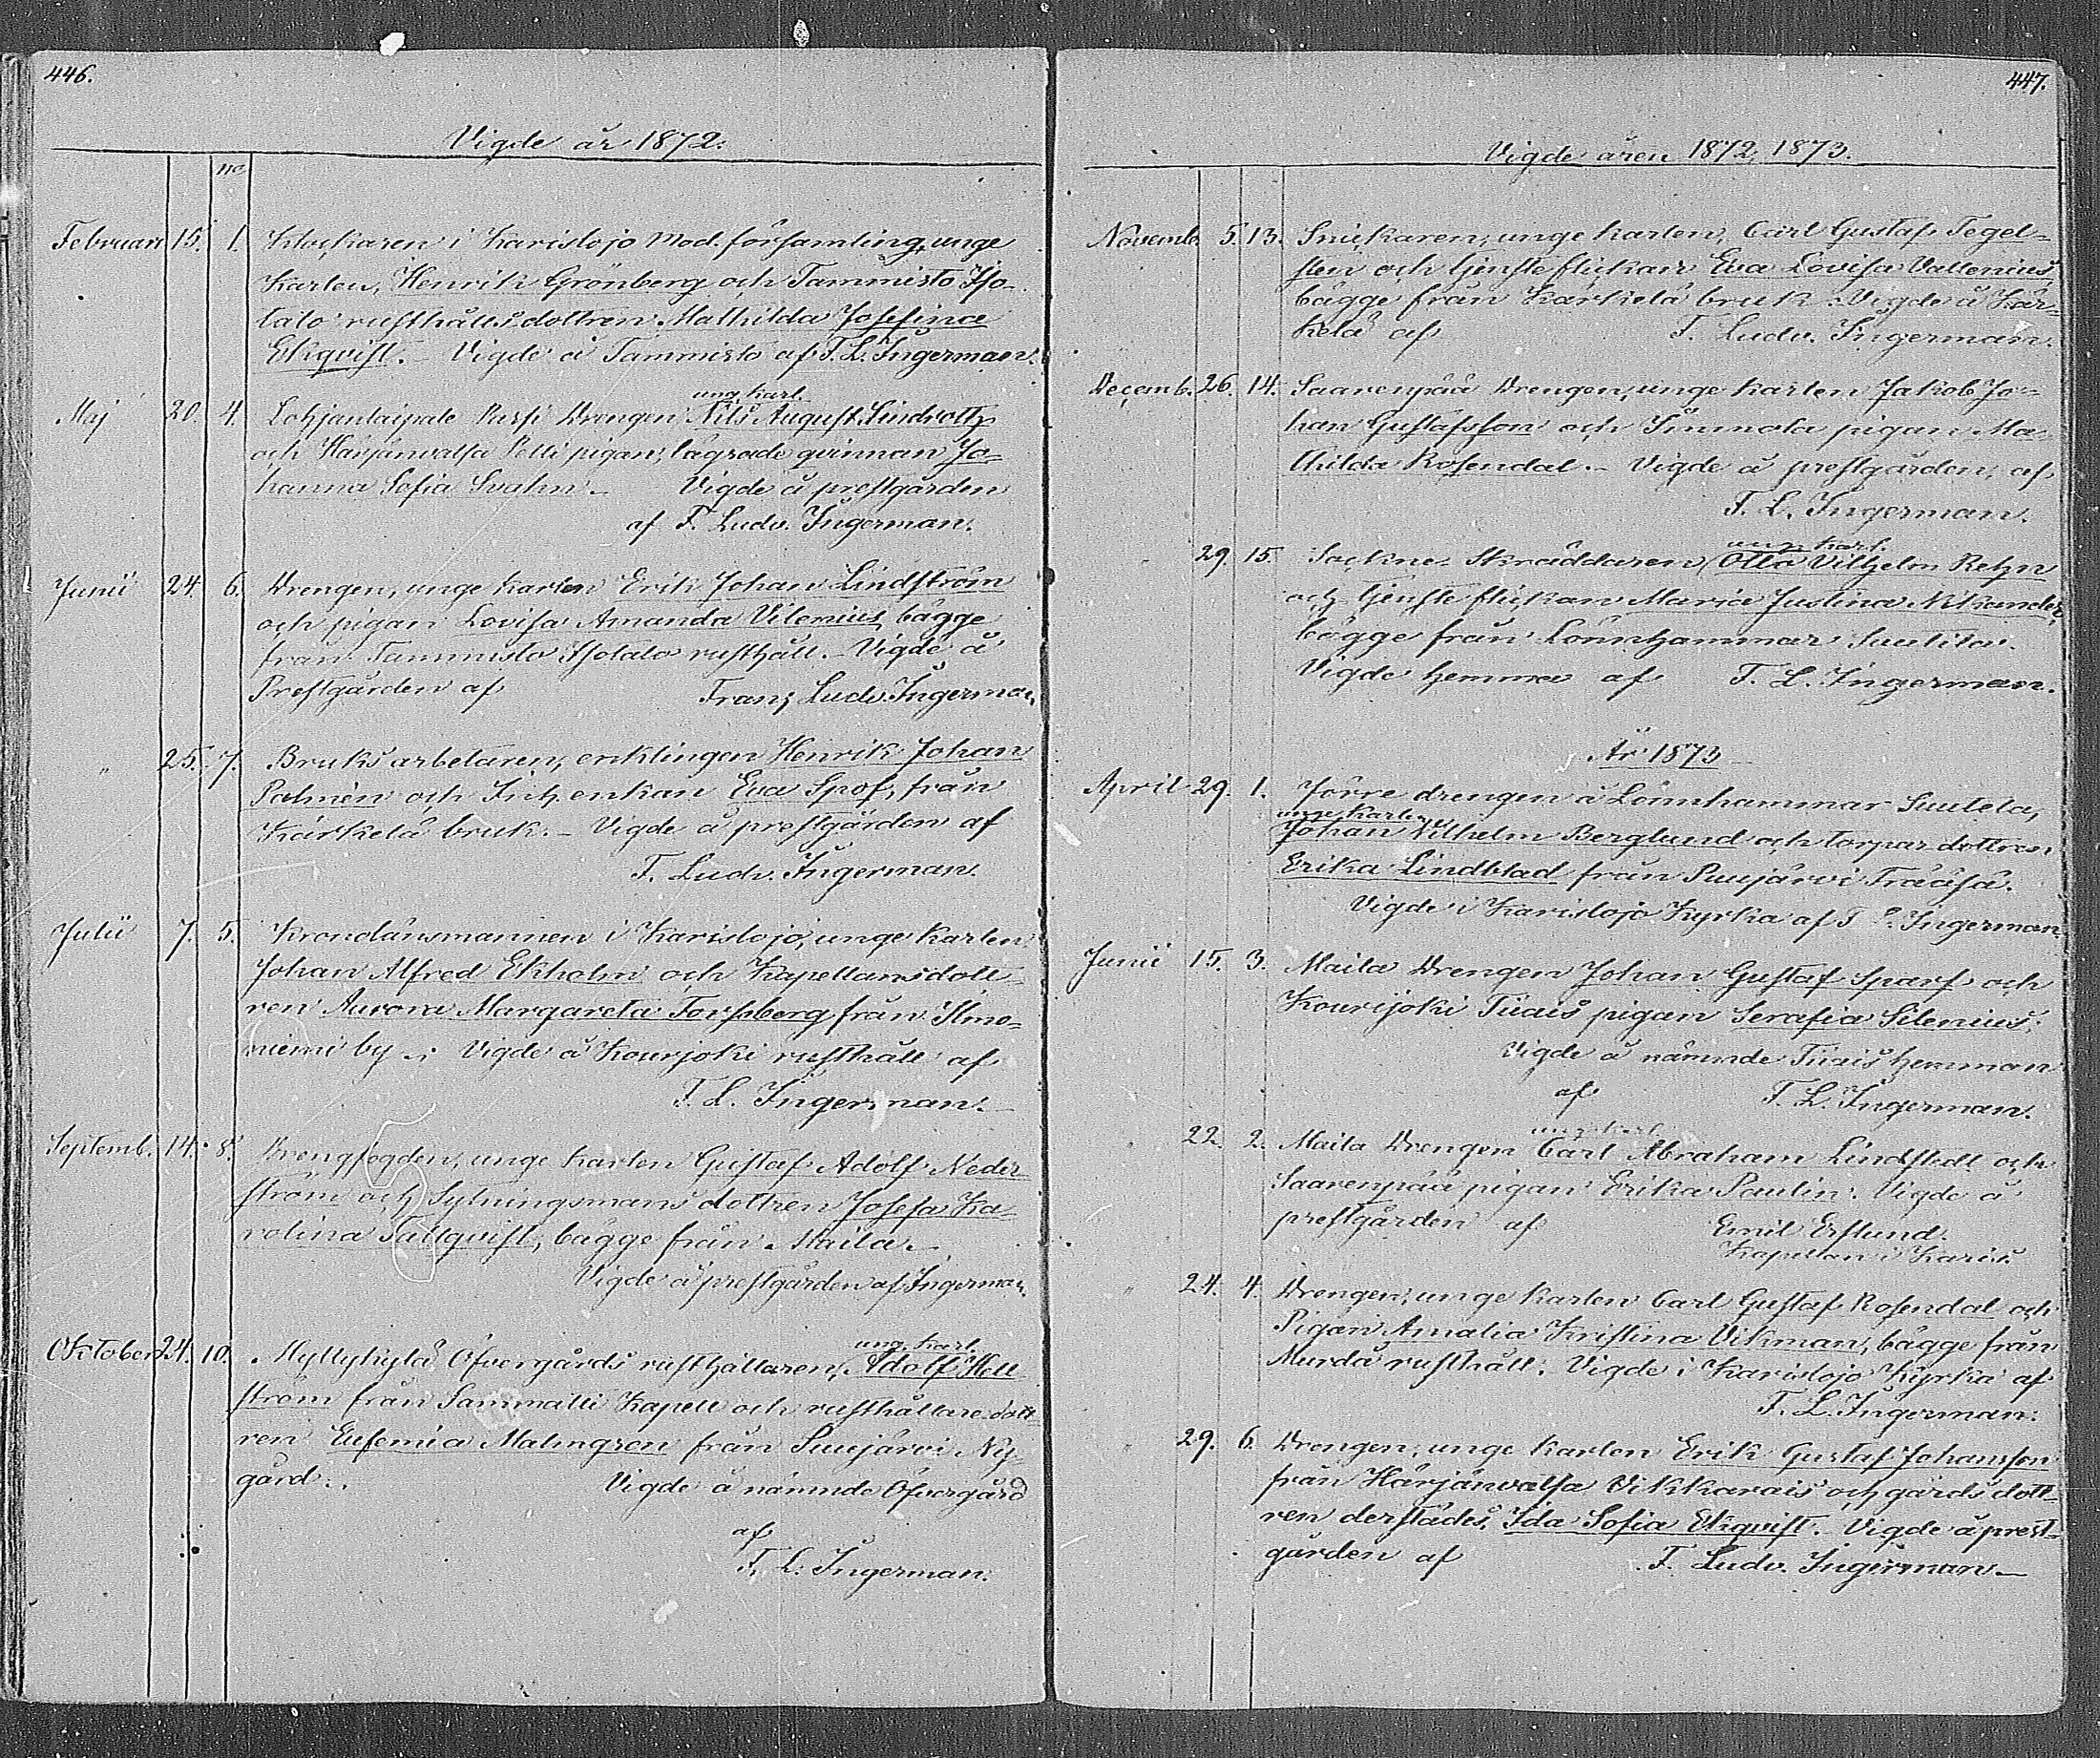 446.
Vigde år 1872.
no
Februari 15. 1. Klockaren i Karislojo Mod. församling, unge
Karlen, Henrik Grönberg och Tammisto Iso-
talo rusthållsdottren Mathilda Josefina
Ekqvist. – Vigde å Tammisto af F. L. Ingerman.
ung. karl.
Maj 20. 4. Lohjantaipale Pussi Drengen Nils August Lindroth
och Härjänvatsa Pelli pigan, lägrade qvinnan Jo-
hanna Sofia Svahn. – Vigde å prestgården
af F. Ludv. Ingerman.
Junii 24. 6. Drengen, unge karlen Erik Johan Lindström
och pigan Lovisa Amanda Vilenius, bägge
från Tammisto Isotalo rusthåll. – Vigde å
Prestgården af Franz Ludv. Ingerman
" 25. 7. Bruksarbetaren, enklingen Henrik Johan
Palmén och Inh. enkan Eva Spof, från
Kärkelä bruk. – Vigde å prestgården af
F. Ludv. Ingerman.
Julii 7. 5. Kronolänsmannen i Karislojo, unge Karlen
Johan Alfred Ekholm och Kapellansdott-
ren Aurora Margareta Forssberg från Ilmo-
niemi by. – Vigde å Kourjoki rusthåll af
F. L. Ingerman. –
Septemb. 14. 8. Drengfogden, unge Karlen Gustaf Adolf Neder
ström och Sytningsmans dottren Josefa Ka-
rolina Sallqvist, bägge från Maila. –
Vigde å prestgården af Ingerman.
ung. karl.
Oktober 24. 10. Myllykylä Öfvergårds rusthållaren, Adolf Hell
ström från Sammatti Kapell och rusthållare dott-
ren Eufemia Malmgren från Suujärvi Ny-
gård. Vigde å nämnde Öfvergård
af
F. L. Ingerman.
447.
Vigde åren 1872, 1873.
Novemb. 5. 13. Snickaren, unge karlen, Carl Gustaf Tegel-
sten och tjensteflickan Eva Lovisa Vallenius,
bägge från Kärkelä bruk. Vigde å Kär-
kelä af F. Ludv. Ingerman.
Decemb. 26. 14. Saarenpää Drengen, unge karlen Jakob Jo-
han Gustafsson och Immola pigan Ma-
thilda Rosendal. – Vigde å prestgården, af
F. L. Ingerman.
ung. karl.
29. 15. Sockne Skräddaren Otto Vilhelm Rehn
och tjenste flickan Maria Justina Nikander,
bägge från Lönnhammar Suutila.
Vigde hemma af F. L. Ingerman.
År 1873
April 29. 1. Förre drengen å Lönnhammar Suutela,
unge karlen
Johan Vilhelm Berglund och torpar dottren
Erika Lindblad från Puujärvi Trääsä.
Vigde i Karislojo Kyrka af F. L. Ingerman.
Junii 15. 3. Maila Drengen Johan Gustaf Sparf och
Kourijoki Tiiais pigan Serafia Silenius.
Vigde å nämnde Tiiais hemman
af F. L. Ingerman.
ung. karl.
" 22. 2. Maila Drengen Carl Abraham Lindstedt och
Saarenpää pigan Erika Paulin. Vigde å
prestgården af Emil Erslund.
Kapellan i Karis.
" 24. 4. Drengen, unge karlen Carl Gustaf Rosendal och
Pigan Amalia Kristina Vikman, bägge från
Murdä rusthåll. Vigde i Karislojo Kyrka af
F. L. Ingerman.
" 29. 6. Drengen, unge karlen Erik Gustaf Johansson
från Härjänvatsa Vikkarais och gårds dott-
ren derstädes, Ida Sofia Ekqvist. Vigde å prest-
gården af F. Ludv. Ingerman. –